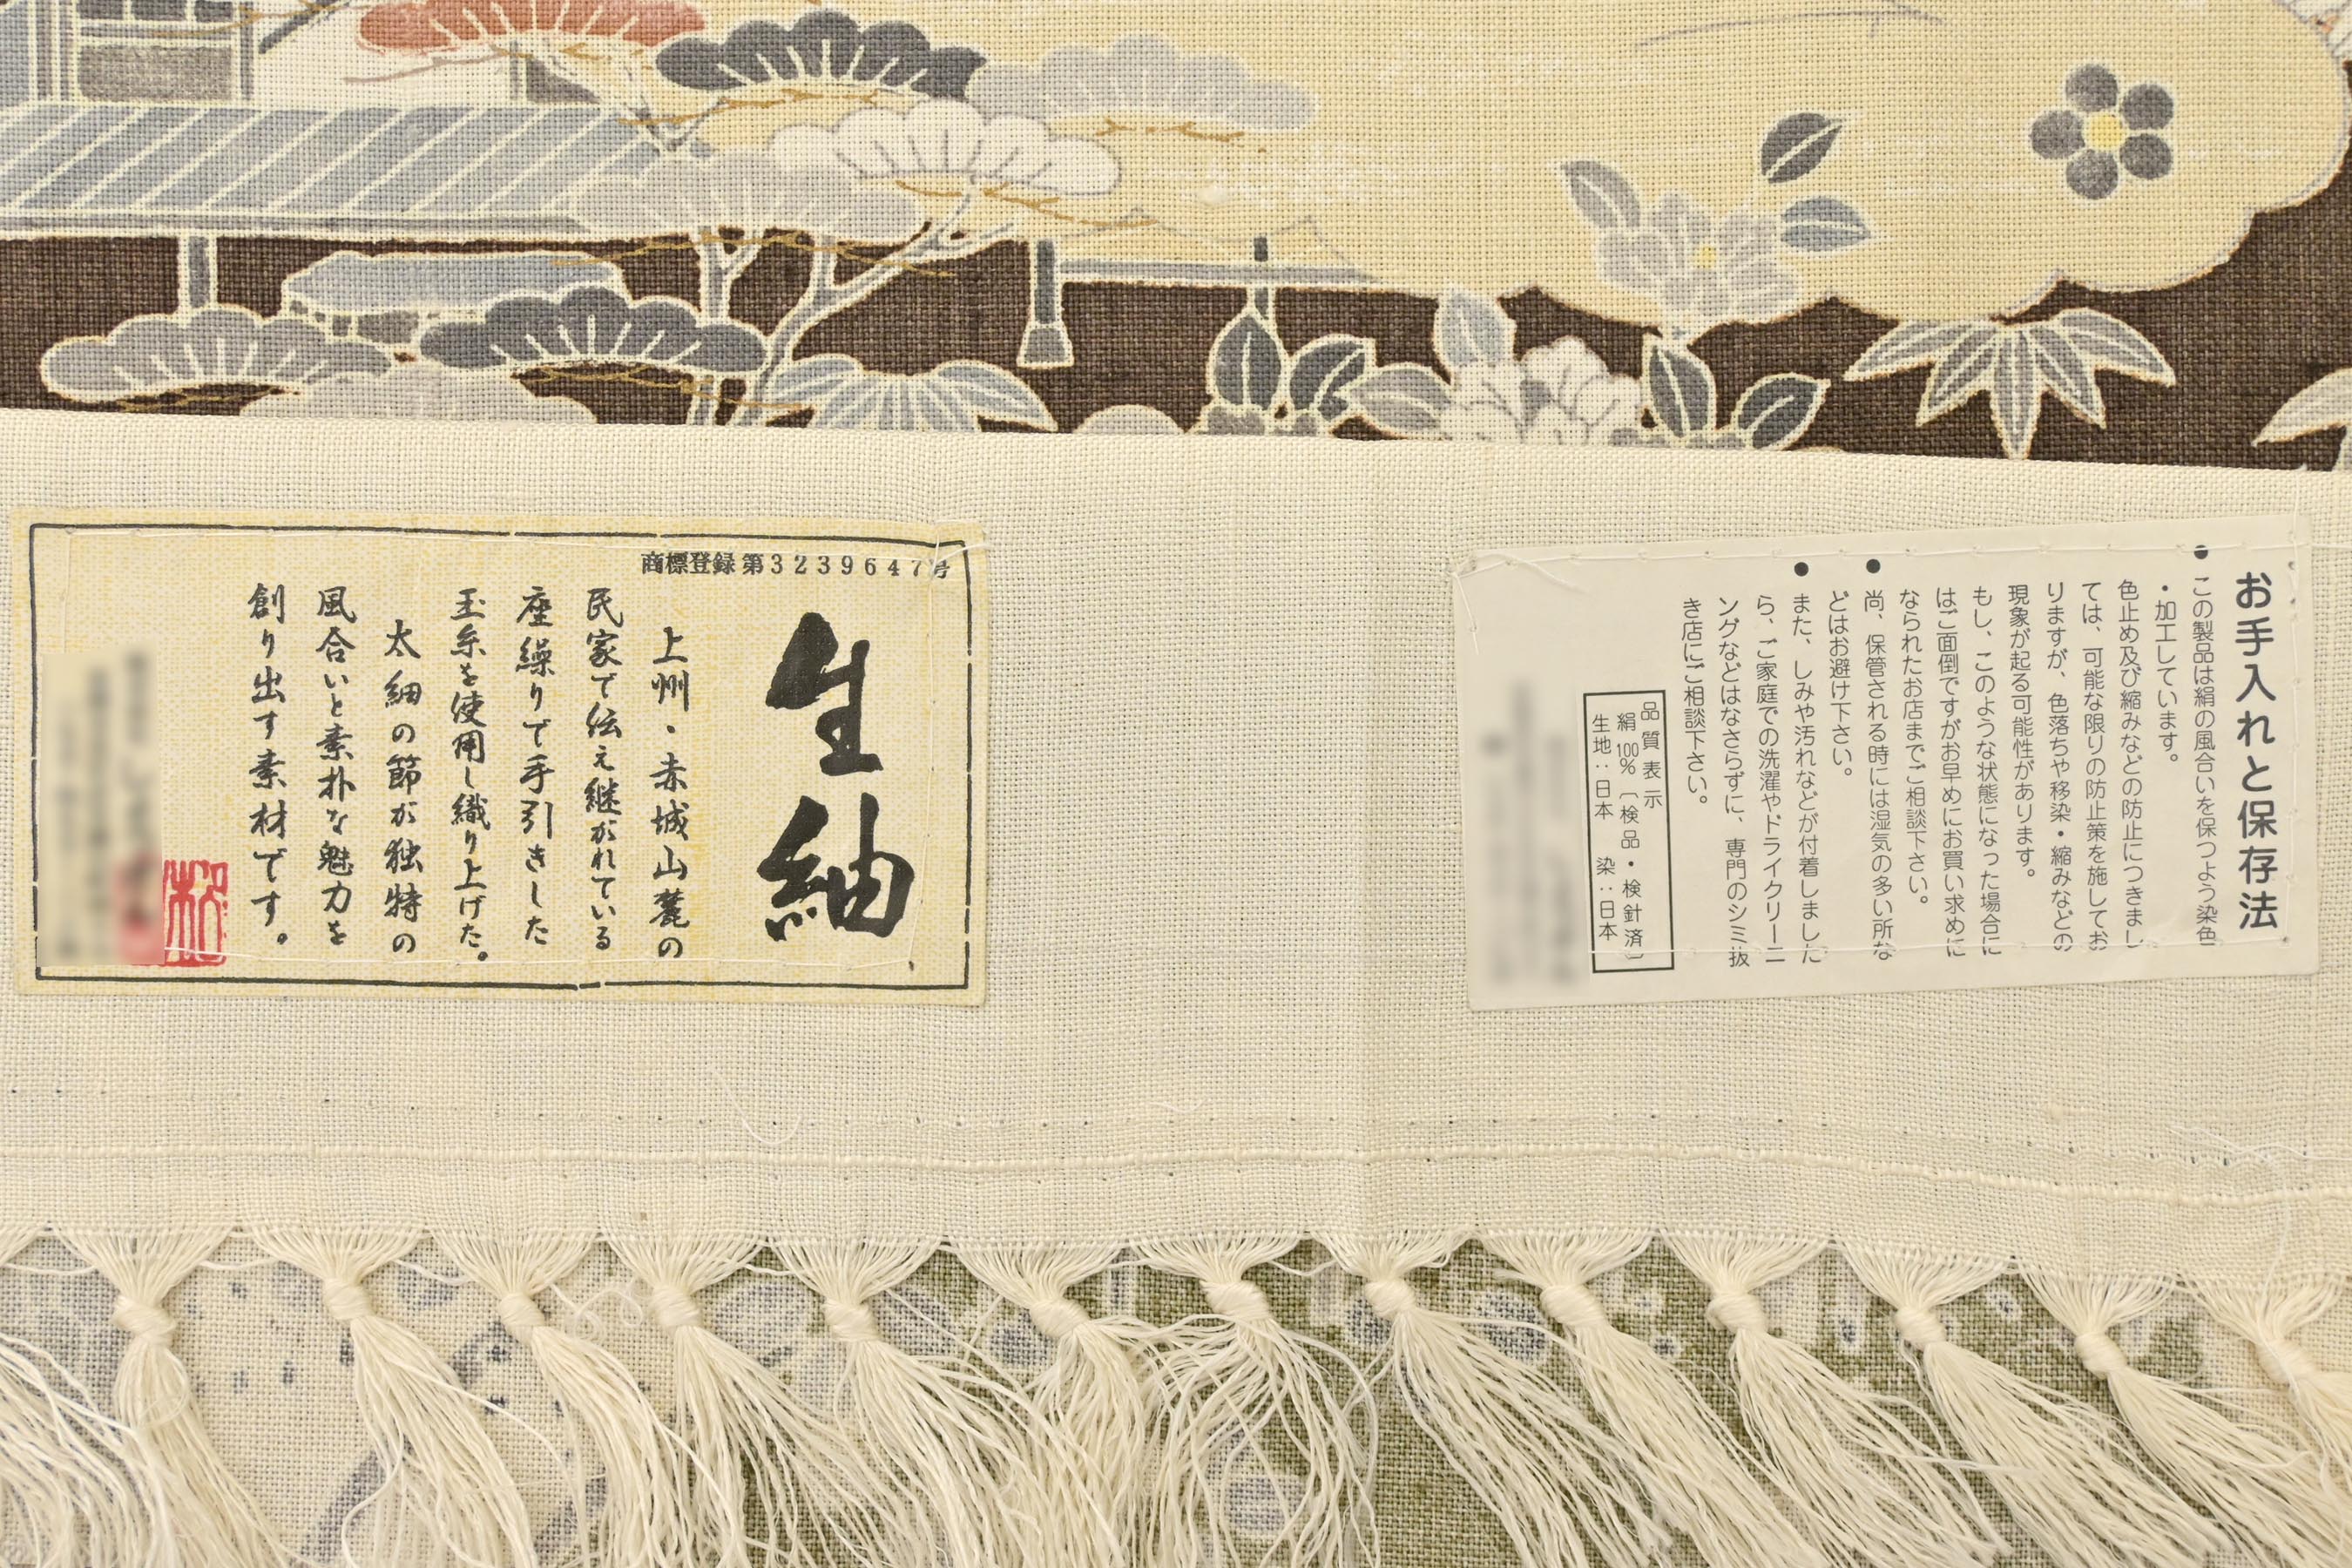 商標登録第3239647号
生紬
上州・赤城山麓の
民家で伝え継がれている
座繰りで手引きした
玉糸を使用し織り上げた。
太細の節が独特の
風合いと素朴な魅力を
創り出す素材です。
お手入れと保存法
●この製品は絹の風合いを保つよう染色
・加工しています。
色止め及び縮みなどの防止につきまし
ては、可能な限りの防止策を施してお
りますが、色落ちや移染・縮みなどの
現象が起る可能性があります。
もし、このような状態になった場合に
はご面倒ですがお早めにお買い求めに
なられたお店までご相談下さい。
●尚、保管される時には湿気の多い所な
どはお避け下さい。
●また、しみや汚れなどが付着しました
ら、ご家庭での洗濯やドライクリーニ
ングなどはなさらずに、専門のシミ抜
き店にご相談下さい。
品質表示
絹100%〔検品・検針済〕
生地：日本 染：日本